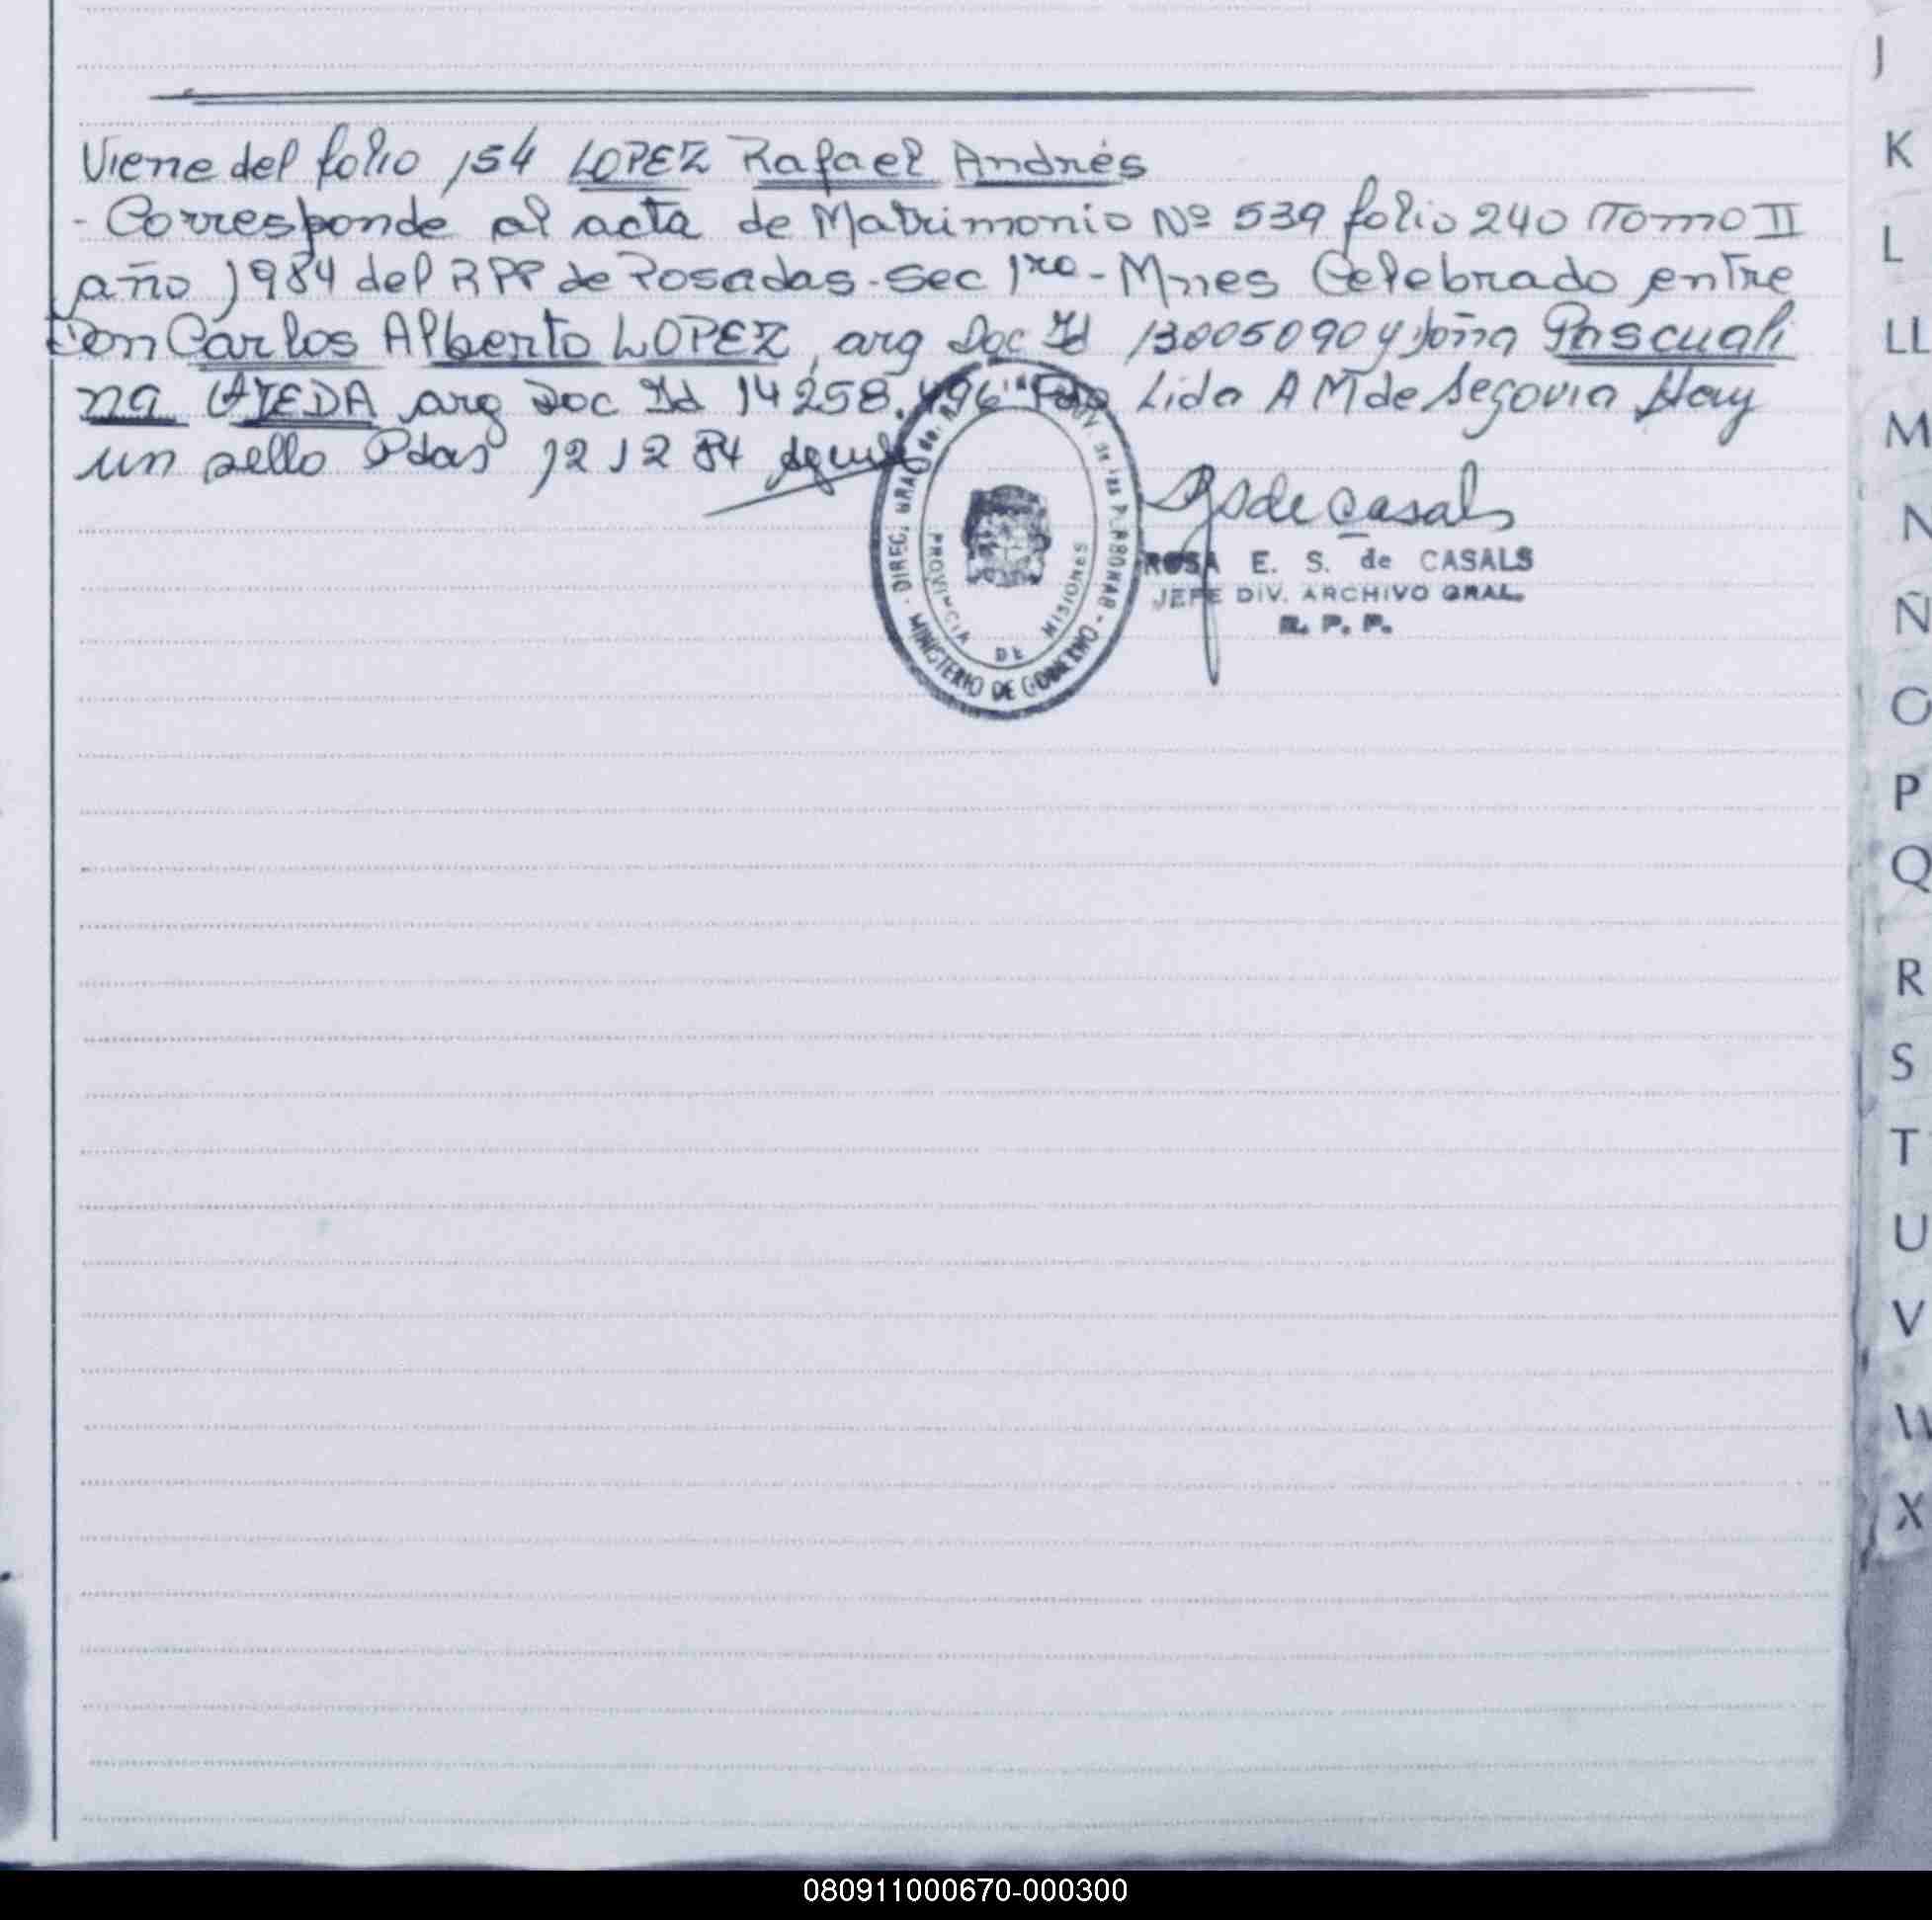 J
K
L
LL
M
N
Ñ
O
P
Q
R
S
T
U
V
W
X
Viene del folio 154 LOPEZ Rafael Andrés
- Corresponde al acta de Matrimonio Nº 539 folio 240 Tomo II
año 1984 del RPP de Posadas - Sec 1ra - Mnes Celebrado entre
Don Carlos Alberto LOPEZ, arg Doc Id 13005090 y Doña Pascuali
na OJEDA arg Doc Id 14258.496 Fdo Lida A M de Segovia Hay
un sello Pdas 12 12 84
DIREC. GRAL de
de las PERSONAS - MINISTERIO DE GOBIERNO -
PROVINCIA DE MISIONES
S de Casals
ROSA E. S. de CASALS
JEFE DIV. ARCHIVO GRAL.
R. P. P.
080911000670-000300